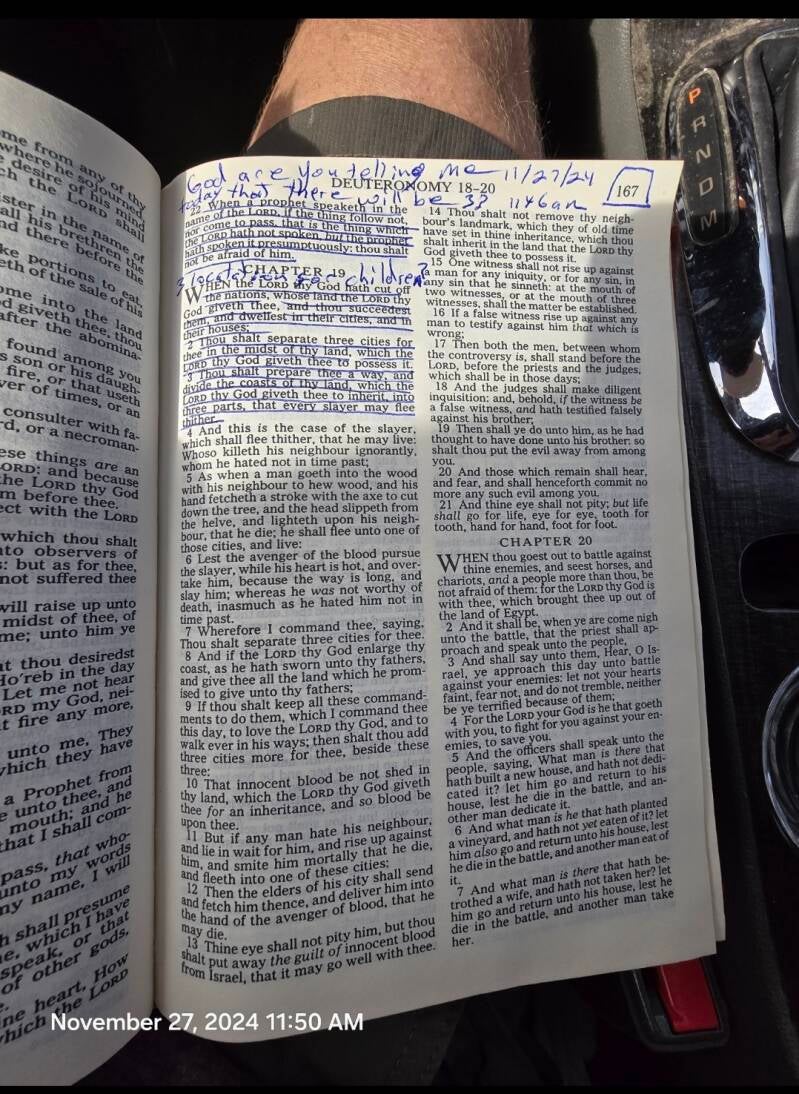 me from any of thy
where he sojourned,
desire of his mind
ch the LORD shall
ister in the name of
all his brethren the
nd there before the
ke portions to eat,
eth of the sale of his
ome into the land
d giveth thee, thou
after the abomina-
found among you
s son or his daugh-
fire, or that useth
ver of times, or an
consulter with fa-
rd, or a necroman-
ese things are an
ORD: and because
he LORD thy God
m before thee.
ect with the LORD
which thou shalt
to observers of
: but as for thee,
not suffered thee
will raise up unto
midst of thee, of
me; unto him ye
t thou desiredst
Ho'reb in the day
Let me not hear
RD my God, nei-
t fire any more,
unto me, They
which they have
a Prophet from
e unto thee, and
mouth; and he
that I shall com-
pass, that who-
unto my words
my name, I will
h shall presume
e, which I have
speak, or that
of other gods,
ne heart, How
which the LORD
God are you telling me 11/27/24
DEUTERONOMY 18-20
167
today that there will be 3? 1146am
22 When a prophet speaketh in the
name of the LORD, if the thing follow not,
nor come to pass, that is the thing which
the LORD hath not spoken, but the prophet
hath spoken it presumptuously: thou shalt
not be afraid of him.
CHAPTER 19
3 locations for children?
WHEN the LORD thy God hath cut off
the nations, whose land the LORD thy
God giveth thee, and thou succeedest
them, and dwellest in their cities, and in
their houses;
2 Thou shalt separate three cities for
thee in the midst of thy land, which the
LORD thy God giveth thee to possess it.
3 Thou shalt prepare thee a way, and
divide the coasts of thy land, which the
LORD thy God giveth thee to inherit, into
three parts, that every slayer may flee
thither.
4 And this is the case of the slayer,
which shall flee thither, that he may live:
Whoso killeth his neighbour ignorantly,
whom he hated not in time past;
5 As when a man goeth into the wood
with his neighbour to hew wood, and his
hand fetcheth a stroke with the axe to cut
down the tree, and the head slippeth from
the helve, and lighteth upon his neigh-
bour, that he die; he shall flee unto one of
those cities, and live:
6 Lest the avenger of the blood pursue
the slayer, while his heart is hot, and over-
take him, because the way is long, and
slay him; whereas he was not worthy of
death, inasmuch as he hated him not in
time past.
7 Wherefore I command thee, saying,
Thou shalt separate three cities for thee.
8 And if the LORD thy God enlarge thy
coast, as he hath sworn unto thy fathers,
and give thee all the land which he prom-
ised to give unto thy fathers;
9 If thou shalt keep all these command-
ments to do them, which I command thee
this day, to love the LORD thy God, and to
walk ever in his ways; then shalt thou add
three cities more for thee, beside these
three:
10 That innocent blood be not shed in
thy land, which the LORD thy God giveth
thee for an inheritance, and so blood be
upon thee.
11 But if any man hate his neighbour,
and lie in wait for him, and rise up against
him, and smite him mortally that he die,
and fleeth into one of these cities:
12 Then the elders of his city shall send
and fetch him thence, and deliver him into
the hand of the avenger of blood, that he
may die.
13 Thine eye shall not pity him, but thou
shalt put away the guilt of innocent blood
from Israel, that it may go well with thee.
14 Thou shalt not remove thy neigh-
bour's landmark, which they of old time
have set in thine inheritance, which thou
shalt inherit in the land that the LORD thy
God giveth thee to possess it.
15 One witness shall not rise up against
a man for any iniquity, or for any sin, in
any sin that he sinneth: at the mouth of
two witnesses, or at the mouth of three
witnesses, shall the matter be established.
16 If a false witness rise up against any
man to testify against him that which is
wrong;
17 Then both the men, between whom
the controversy is, shall stand before the
LORD, before the priests and the judges,
which shall be in those days;
18 And the judges shall make diligent
inquisition: and, behold, if the witness be
a false witness, and hath testified falsely
against his brother;
19 Then shall ye do unto him, as he had
thought to have done unto his brother: so
shalt thou put the evil away from among
you.
20 And those which remain shall hear,
and fear, and shall henceforth commit no
more any such evil among you.
21 And thine eye shall not pity; but life
shall go for life, eye for eye, tooth for
tooth, hand for hand, foot for foot.
CHAPTER 20
WHEN thou goest out to battle against
thine enemies, and seest horses, and
chariots, and a people more than thou, be
not afraid of them: for the LORD thy God is
with thee, which brought thee up out of
the land of Egypt.
2 And it shall be, when ye are come nigh
unto the battle, that the priest shall ap-
proach and speak unto the people,
3 And shall say unto them, Hear, O Is-
rael, ye approach this day unto battle
against your enemies: let not your hearts
faint, fear not, and do not tremble, neither
be ye terrified because of them;
4 For the LORD your God is he that goeth
with you, to fight for you against your en-
emies, to save you.
5 And the officers shall speak unto the
people, saying, What man is there that
hath built a new house, and hath not dedi-
cated it? let him go and return to his
house, lest he die in the battle, and an-
other man dedicate it.
6 And what man is he that hath planted
a vineyard, and hath not yet eaten of it? let
him also go and return unto his house, lest
he die in the battle, and another man eat of
it.
7 And what man is there that hath be-
trothed a wife, and hath not taken her? let
him go and return unto his house, lest he
die in the battle, and another man take
her.
P
R
N
D
M
November 27, 2024 11:50 AM